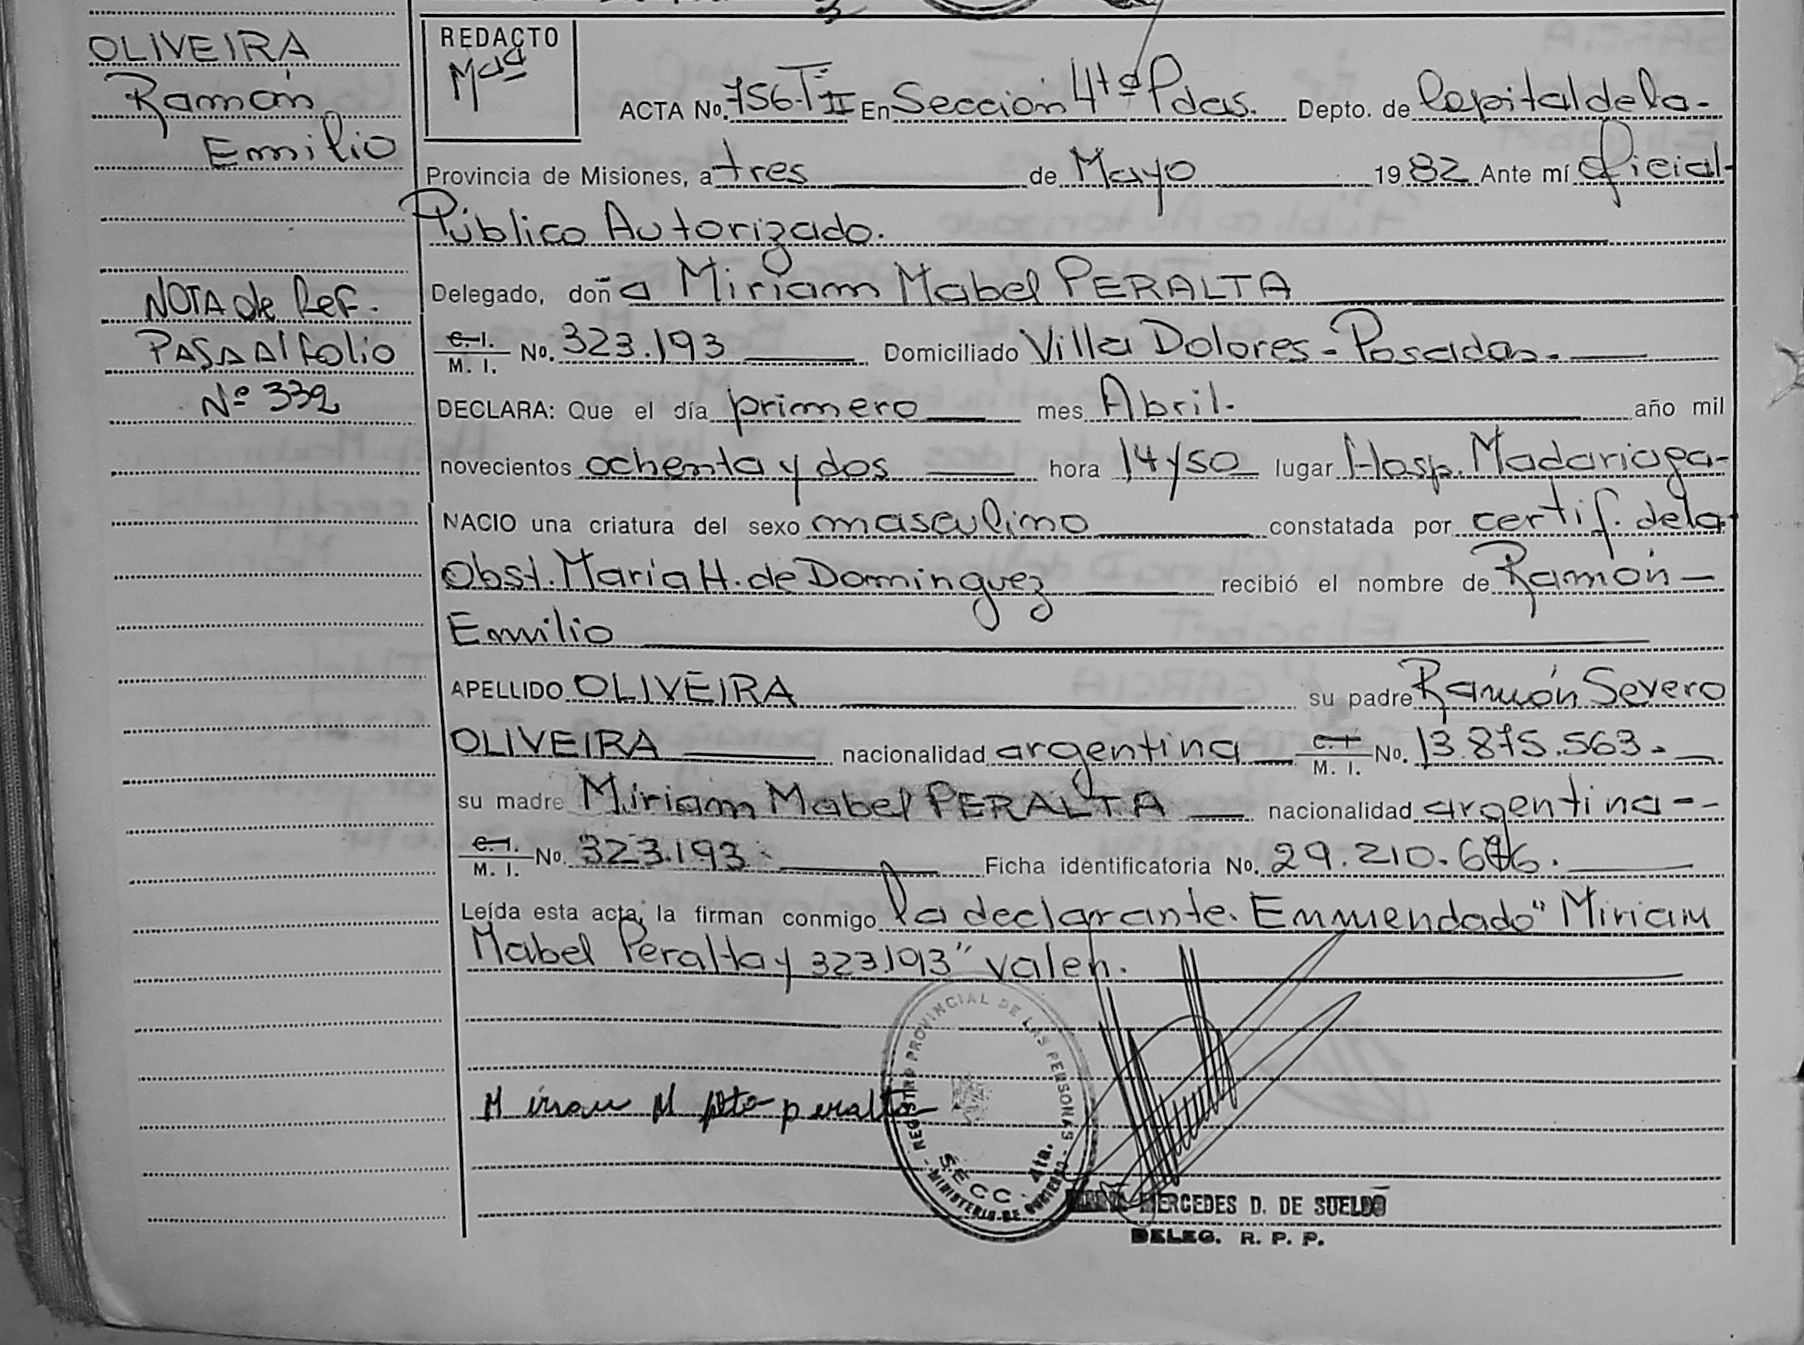 OLIVEIRA
Ramón
Emilio
NOTA de Ref.
PASA Al folio
Nº 332
REDACTO
Mª
ACTA No. 756-TºII En Seccion 4tª Pdas. Depto. de Capital de la-
Provincia de Misiones, a tres de Mayo 1982 Ante mí Oficial-
Público Autorizado.
Delegado, doña Miriam Mabel PERALTA
C. I. / M. I. No. 323.193 Domiciliado Villa Dolores - Posadas.
DECLARA: Que el día primero mes Abril. año mil
novecientos ochenta y dos hora 14 y 50 lugar Hosp. Madariaga-
NACIO una criatura del sexo masculino constatada por certif. de la
Obst. María H. de Dominguez recibió el nombre de Ramón-
Emilio
APELLIDO OLIVEIRA su padre Ramón Severo
OLIVEIRA nacionalidad argentina C. I. / M. I. No. 13.875.563.
su madre Miriam Mabel PERALTA nacionalidad argentina--
C. I. / M. I. No. 323.193 Ficha identificatoria No. 29.210.676.
Leída esta acta, la firman conmigo la declarante. Enmendado "Miriam
Mabel Peralta y 323193" valen.
REGISTRO PROVINCIAL DE LAS PERSONAS
SECC. 4ta.
MINISTERIO DE GOBIERNO
Miriam M peralta
MERCEDES D. DE SUELDO
DELEG. R. P. P.